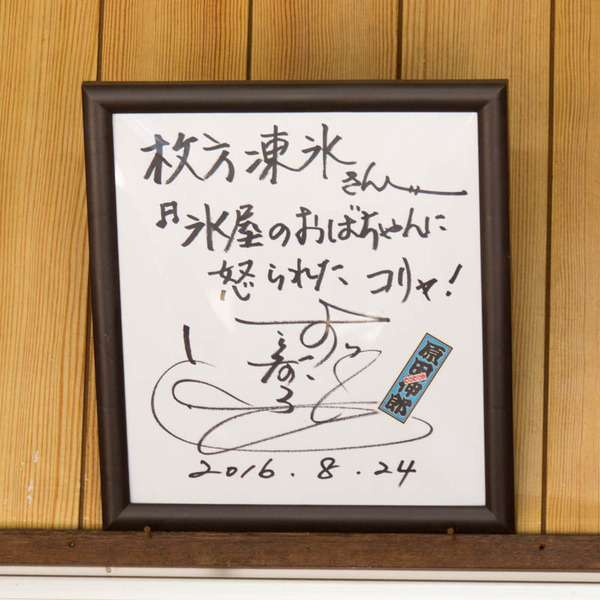 枚方凍氷
さんへ
♬氷屋のおばちゃんに
怒られた コリャ!
原田伸郎
2016.8.24